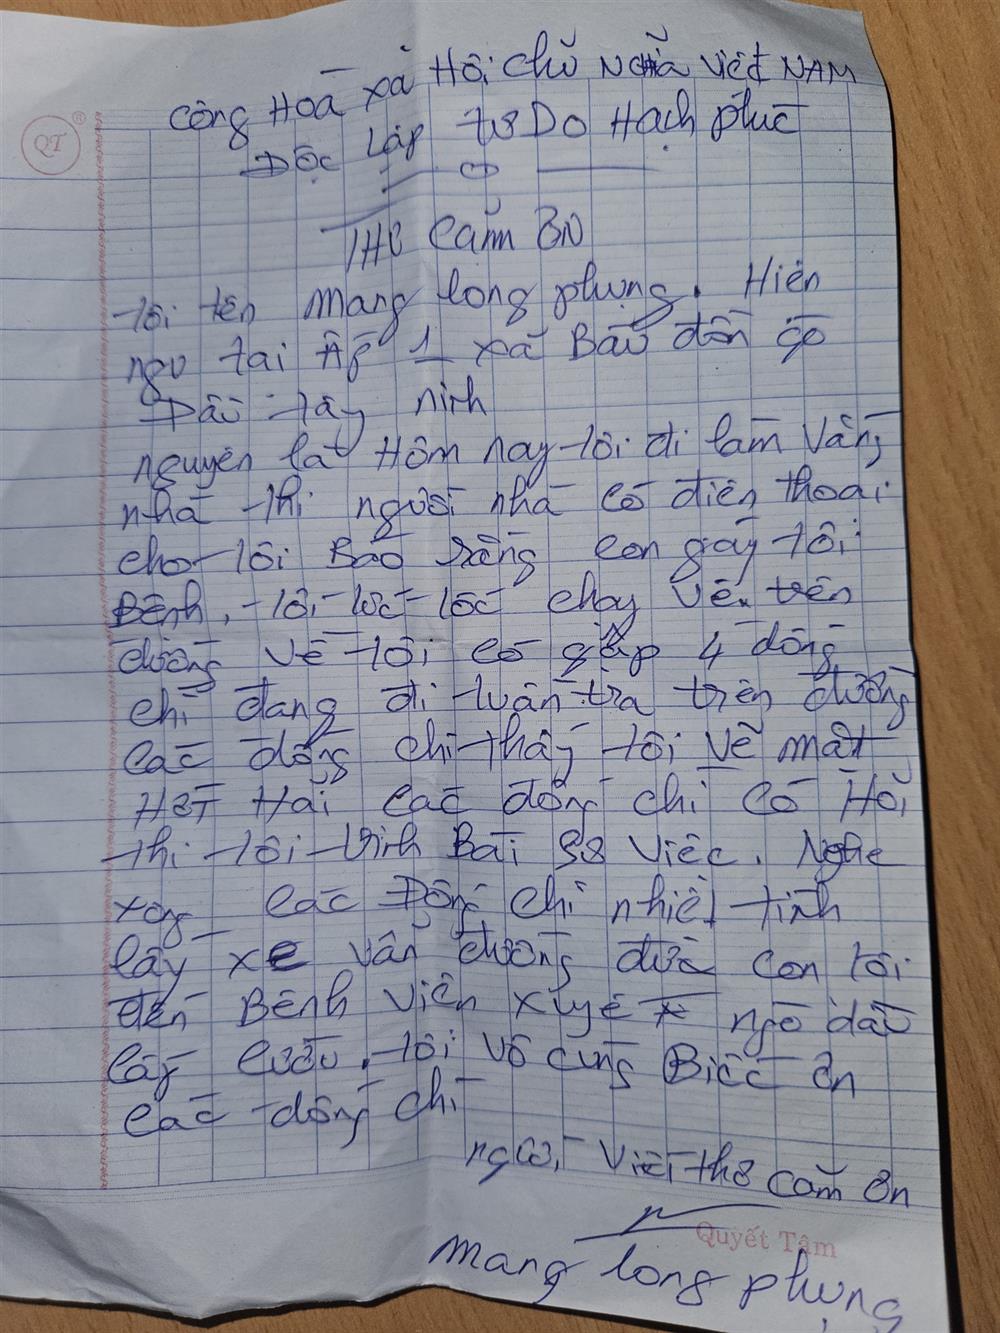 QT ®
Công Hoà xả Hôi Chủ Nghĩa Việt NAM
Độc Lâp Tư Do Hạch phúc
THƠ Cảm ƠN
tôi tên mang long phụng. Hiên
ngụ tai Ấp 1 xã Bàu đồn gò
Dầu tây ninh
nguyên là Hôm nay tôi đi làm Vắng
nhà thì người nhà có điên thoai
cho tôi Báo rằng con gáy tôi
Bênh, tôi tức tốc chạy Về. trên
đường Về tôi có gặp 4 đồng
chí đang đi tuần tra trên đường
các đồng chí thấy tôi Vẽ mặt
Hớt Hải các đồng chí có Hỏi
thì tôi trình Bài sư việc. Nghe
xong các Đồng chí nhiêt tình
lấy xe vân chuông đưa con tôi
đến Bênh viên xuyê ngò dầu
cấy cưởu. tôi vô cùng Biêc ơn
các đồng chí
người Viết thơ cảm ơn
Quyết Tâm
mang long phụng